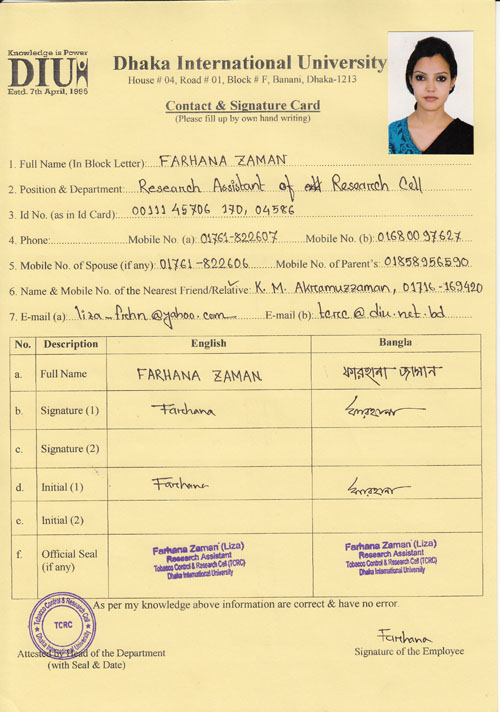 Knowledge is Power
DIU
Estd. 7th April, 1995
Dhaka International University
House # 04, Road # 01, Block # F, Banani, Dhaka-1213
Contact & Signature Card
(Please fill up by own hand writing)
1. Full Name (In Block Letter): FARHANA ZAMAN
2. Position & Department: Research Assistant of Research Cell
3. Id No. (as in Id Card): 00111 45706 170, 04586
4. Phone: Mobile No. (a): 01761-822607 Mobile No. (b): 01680097627
5. Mobile No. of Spouse (if any): 01761-822606 Mobile No. of Parent's: 01858956590
6. Name & Mobile No. of the Nearest Friend/Relative: K. M. Akramuzzaman, 01716-169420
7. E-mail (a): liza_frhn@yahoo.com E-mail (b): tcrc@diu.net.bd
No. Description English Bangla
a. Full Name FARHANA ZAMAN ফারহানা জামান
b. Signature (1) Farhana ফারহানা
c. Signature (2)
d. Initial (1) Farhana ফারহানা
e. Initial (2)
f. Official Seal (if any)
Farhana Zaman (Liza)
Research Assistant
Tobacco Control & Research Cell (TCRC)
Dhaka International University
Farhana Zaman (Liza)
Research Assistant
Tobacco Control & Research Cell (TCRC)
Dhaka International University
As per my knowledge above information are correct & have no error.
Tobacco Control & Research Cell
TCRC
Dhaka International University
Farhana
Attested by Head of the Department
(with Seal & Date)
Signature of the Employee